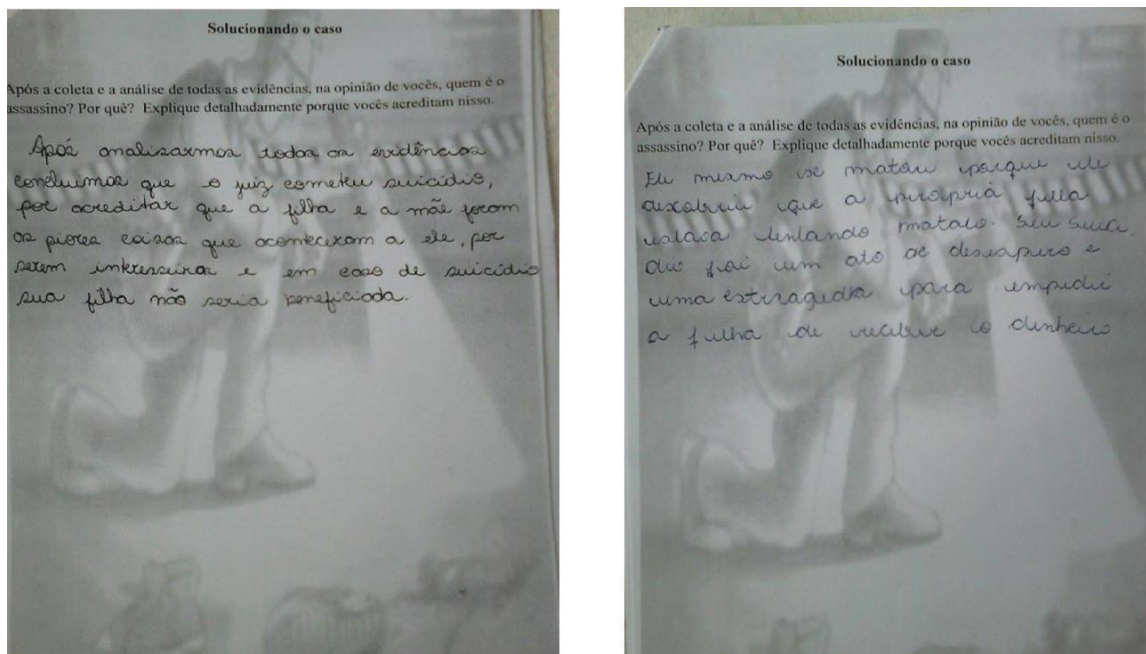 Solucionando o caso
Após a coleta e a análise de todas as evidências, na opinião de vocês, quem é o
assassino? Por quê? Explique detalhadamente porque vocês acreditam nisso.
Após analisarmos todas as evidências
concluimos que o juiz cometeu suicídio,
por acreditar que a filha e a mãe foram
as piores coisas que aconteceram a ele, por
serem interesseiras e em caso de suicídio
sua filha não seria beneficiada.
Solucionando o caso
Após a coleta e a análise de todas as evidências, na opinião de vocês, quem é o
assassino? Por quê? Explique detalhadamente porque vocês acreditam nisso.
Ele mesmo se matou porque ele
descobriu que a propria filha
estava tentando matalo. Seu suici
dio foi um ato de desespero e
uma para impedir
a filha de receber o dinheiro